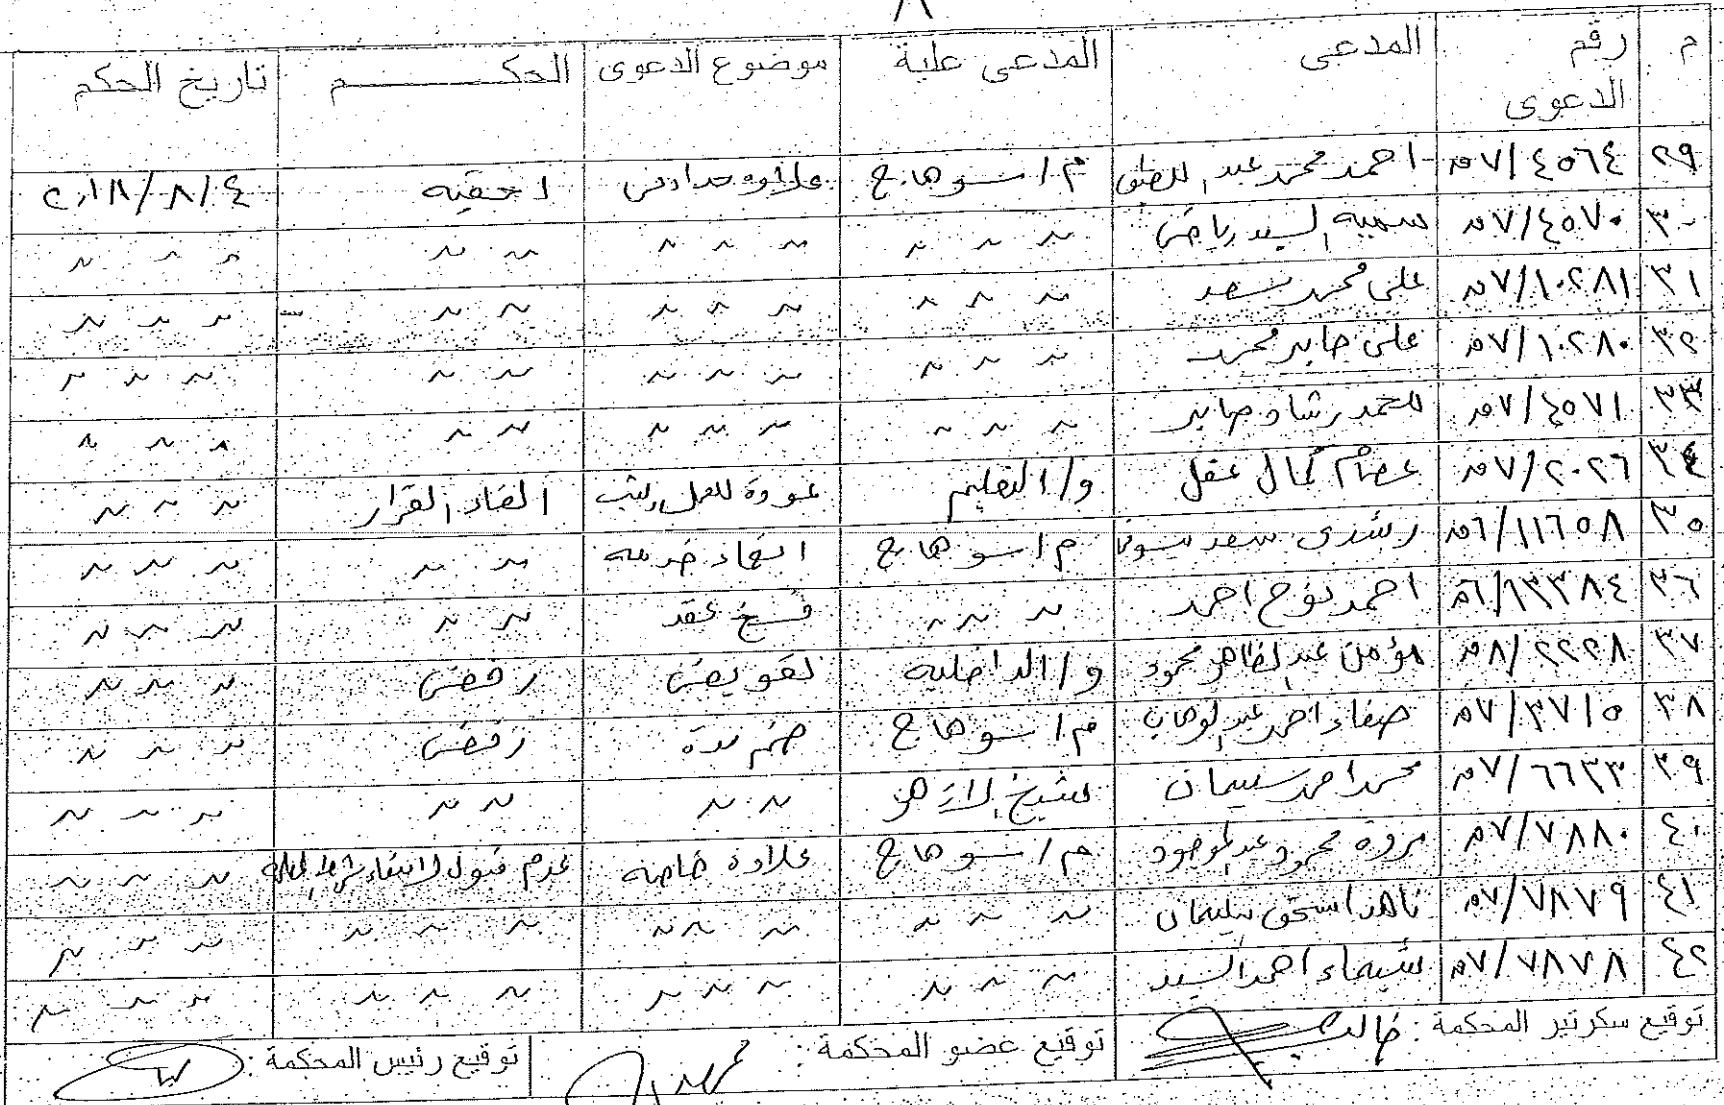 ٨
م | رقم الدعوى | المدعى | المدعى علية | موضوع الدعوى | الحكـــــــم | تاريخ الحكم
٢٩ | ٤٥٦٤/٧ق | احمد محمد عبد | م/سوهاج | علاوة | احقيه | ٢٠١٨/٨/٤
٣٠ | ٤٥٧٠/٧ق | سميه السيد رياض | ~ ~ ~ | ~ ~ ~ | ~ ~ | ~ ~ ~
٣١ | ١٠٢٨١/٧ق | على محمد سعد | ~ ~ ~ | ~ ~ ~ | ~ ~ | ~ ~ ~
٣٢ | ١٠٢٨٠/٧ق | على جابر محمد | ~ ~ ~ | ~ ~ ~ | ~ ~ | ~ ~ ~
٣٣ | ٤٥٧١/٧ق | محمد رشاد صابر | ~ ~ ~ | ~ ~ ~ | ~ ~ | ~ ~ ~
٣٤ | ٢٠٢٦/٧ق | عصام كمال عقل | و/التعليم | عودة للعمل | الغاء القرار | ~ ~ ~
٣٥ | ١١٦٥٨/٦ق | رشدى سعد | م/سوهاج | انهاء خدمه | ~ ~ | ~ ~ ~
٣٦ | ١٣٣٨٤/٦ق | احمد نوح احمد | ~ ~ ~ | فسخ عقد | ~ ~ | ~ ~ ~
٣٧ | ٢٢٢٨/٨ق | مؤمن عبد الظاهر محمود | و/الداخليه | تعويض | رفض | ~ ~ ~
٣٨ | ٣٧١٥/٧ق | صفاء احمد عبد الوهاب | م/سوهاج | ضم مدة | رفض | ~ ~ ~
٣٩ | ٦٦٣٣/٧ق | محمد احمد سليمان | شيخ الازهر | ~ ~ | ~ ~ | ~ ~ ~
٤٠ | ٧٨٨٠/٧ق | مروة محمود عبد الموجود | م/سوهاج | علاوة خاصه | عدم قبول لانتفاء شرط المصلحة | ~ ~ ~
٤١ | ٧٨٧٩/٧ق | ناهد اسحق سليمان | ~ ~ ~ | ~ ~ ~ | ~ ~ ~ | ~ ~ ~
٤٢ | ٧٨٧٨/٧ق | شيماء احمد السيد | ~ ~ ~ | ~ ~ ~ | ~ ~ ~ | ~ ~ ~
توقيع سكرتير المحكمة : خالد | توقيع عضو المحكمة : | توقيع رئيس المحكمة :